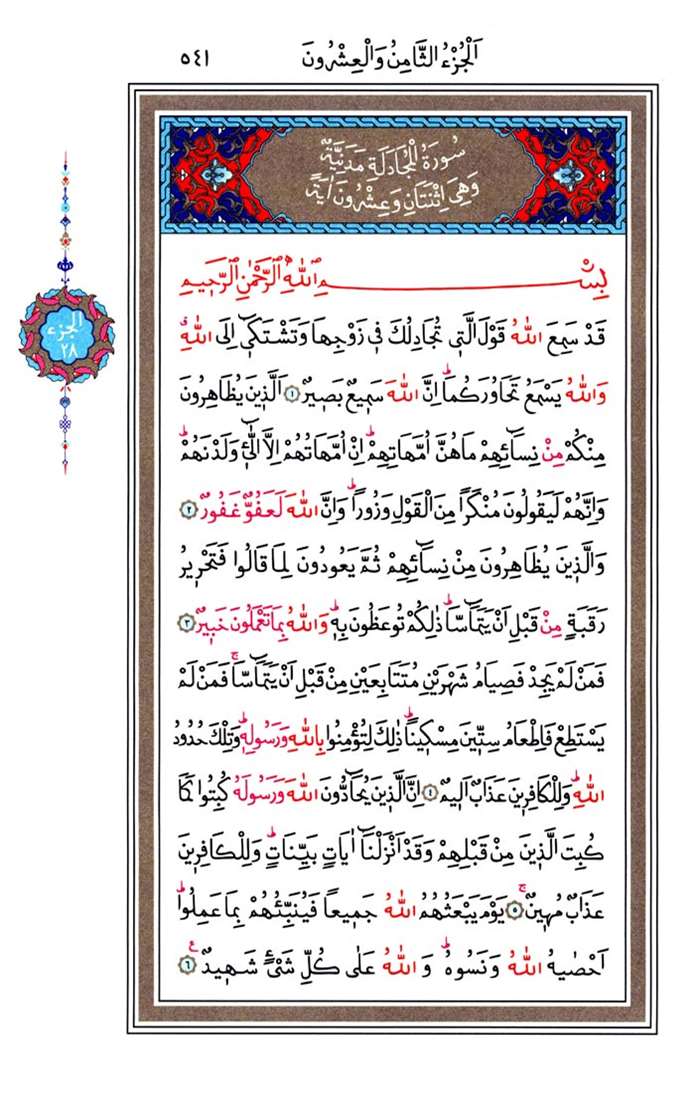 اَلْجُزْءُ الثَّامِنُ وَالْعِشْرُونَ
٥٤١
سُورَةُ الْمُجَادَلَةِ مَدَنِيَّةٌ
وَهِيَ اِثْنَتَانِ وَعِشْرُونَ اٰيَةً
الجزء
٢٨
بِسْمِ اللّٰهِ الرَّحْمٰنِ الرَّحٖيمِ
قَدْ سَمِعَ اللّٰهُ قَوْلَ الَّتٖى تُجَادِلُكَ فٖى زَوْجِهَا وَتَشْتَكٖٓى اِلَى اللّٰهِۗ
وَاللّٰهُ يَسْمَعُ تَحَاوُرَكُمَاۜ اِنَّ اللّٰهَ سَمٖيعٌ بَصٖيرٌ ١ اَلَّذٖينَ يُظَاهِرُونَ
مِنْكُمْ مِنْ نِسَٓائِهِمْ مَا هُنَّ اُمَّهَاتِهِمْۜ اِنْ اُمَّهَاتُهُمْ اِلَّا الّٰٓـٖٔى وَلَدْنَهُمْۜ
وَاِنَّهُمْ لَيَقُولُونَ مُنْكَرًا مِنَ الْقَوْلِ وَزُورًاۜ وَاِنَّ اللّٰهَ لَعَفُوٌّ غَفُورٌ ٢
وَالَّذٖينَ يُظَاهِرُونَ مِنْ نِسَٓائِهِمْ ثُمَّ يَعُودُونَ لِمَا قَالُوا فَتَحْرٖيرُ
رَقَبَةٍ مِنْ قَبْلِ اَنْ يَتَمَٓاسَّاۜ ذٰلِكُمْ تُوعَظُونَ بِهٖۜ وَاللّٰهُ بِمَا تَعْمَلُونَ خَبٖيرٌ ٣
فَمَنْ لَمْ يَجِدْ فَصِيَامُ شَهْرَيْنِ مُتَتَابِعَيْنِ مِنْ قَبْلِ اَنْ يَتَمَٓاسَّاۚ فَمَنْ لَمْ
يَسْتَطِعْ فَاِطْعَامُ سِتّٖينَ مِسْكٖينًاۜ ذٰلِكَ لِتُؤْمِنُوا بِاللّٰهِ وَرَسُولِهٖۜ وَتِلْكَ حُدُودُ
اللّٰهِۜ وَلِلْكَافِرٖينَ عَذَابٌ اَلٖيمٌ ٤ اِنَّ الَّذٖينَ يُحَٓادُّونَ اللّٰهَ وَرَسُولَهُ كُبِتُوا كَمَا
كُبِتَ الَّذٖينَ مِنْ قَبْلِهِمْ وَقَدْ اَنْزَلْنَٓا اٰيَاتٍ بَيِّنَاتٍۜ وَلِلْكَافِرٖينَ
عَذَابٌ مُهٖينٌۚ ٥ يَوْمَ يَبْعَثُهُمُ اللّٰهُ جَمٖيعًا فَيُنَبِّئُهُمْ بِمَا عَمِلُواۜ
اَحْصٰيهُ اللّٰهُ وَنَسُوهُۜ وَاللّٰهُ عَلٰى كُلِّ شَىْءٍ شَهٖيدٌ ٦ ع